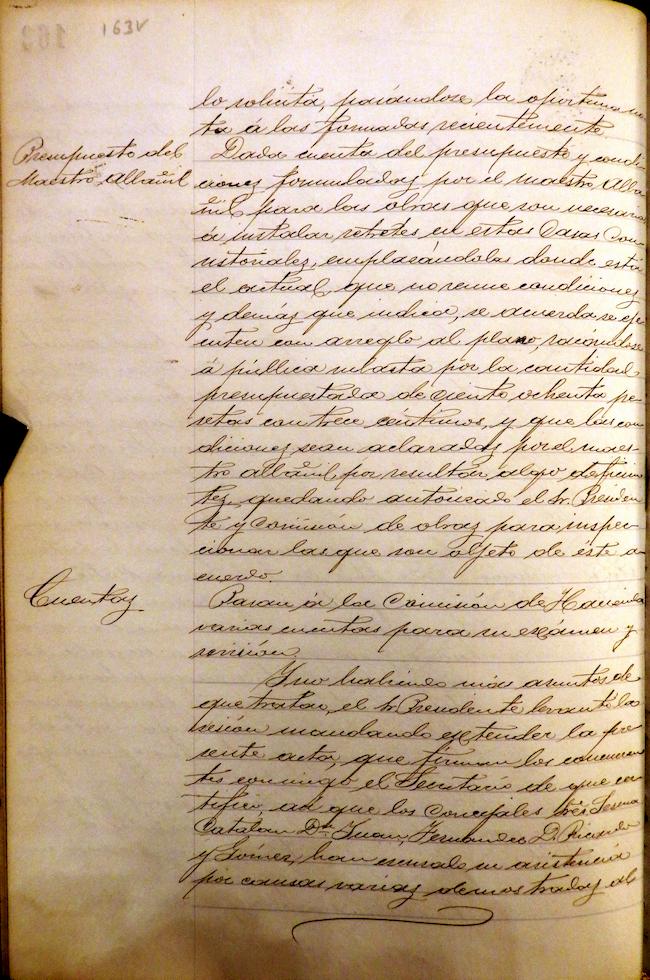 163v
lo solicita, pasándose la oportuna no-
ta á las formadas recientemente.
Presupuesto del
Maestro albañil
Dada cuenta del presupuesto y condi-
ciones formuladas por el maestro alba-
ñil para las obras que son necesarias
á instalar retretes en estas Casas Con-
sistoriales, emplazándolas donde está
el actual, que no reune condiciones
y demás que indica, se acuerda se eje-
cuten con arreglo al plano, sacándose
á pública subasta por la cantidad
presupuestada de ciento ochenta pe-
setas con trece céntimos, y que las con-
diciones sean aclaradas por el maes-
tro albañil por resultar algo deficien-
tes, quedando autorizado el Sr. Presiden-
te y Comisión de obras para inspec-
cionar las que son objeto de éste a-
cuerdo.
Cuentas
Pasan á la Comisión de Hacienda
varias cuentas para su exámen y
revisión.
Y no habiendo más asuntos de
que tratar, el Sr. Presidente levantó la
sesión mandando extender la pre-
sente acta, que firman los concurren-
tes conmigo el Secretario de que cer-
tifico, así que los Concejales Sres
Catalán Dn. Juan, Fernandez D. Ricardo
y Goméz, han escusado su asistencia
por causas varias demostradas al